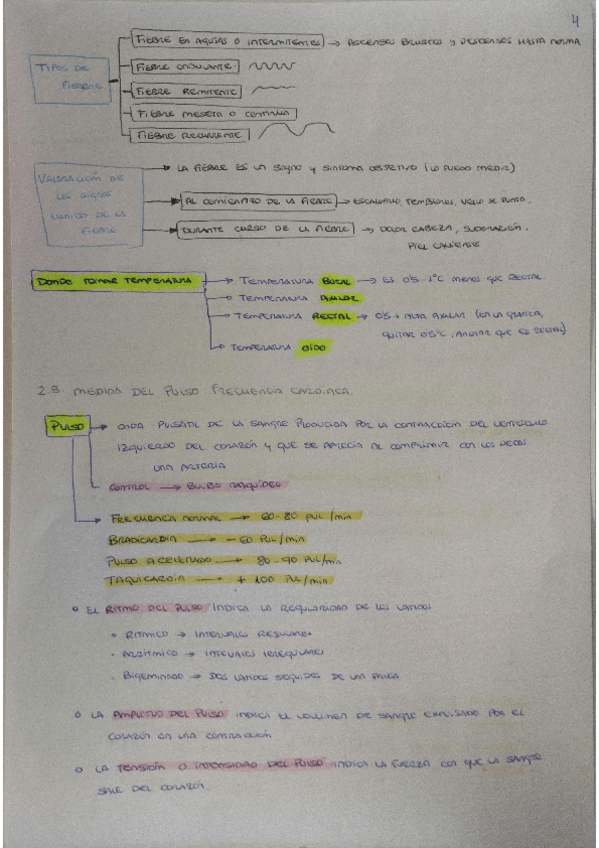 4
FIEBRE EN AGUJAS O INTERMITENTES → ASCENSOS BRUSCOS Y DESCENSOS HASTA NORMA
TIPOS DE FIEBRE
FIEBRE ONDULANTE
FIEBRE REMITENTE
FIEBRE MESETA O CONTINUA
FIEBRE RECURRENTE
VALORACIÓN DE
LOS SIGNOS
CLÍNICO DE LA
FIEBRE
LA FIEBRE ES UN SIGNO Y SÍNTOMA OBJETIVO (LO PUEDO MEDIR)
AL COMIENZO DE LA FIEBRE → ESCALOFRÍO, TEMBLORES, VELLO DE PUNTA.
DURANTE CURSO DE LA FIEBRE → DOLOR CABEZA, SUDORACIÓN,
PIEL CALIENTE
DONDE TOMAR TEMPERATURA
TEMPERATURA BUCAL → ES 0'5-1°C MENOS QUE RECTAL
TEMPERATURA AXILAR
TEMPERATURA RECTAL → 0'5 + ALTA AXILAR (EN LA GRÁFICA,
QUITAR 0'5°C, ANOTAR QUE ES RECTAL)
TEMPERATURA OÍDO
2.3. MEDIDA DEL PULSO FRECUENCIA CARDIACA.
PULSO → ONDA PULSÁTIL DE LA SANGRE PRODUCIDA POR LA CONTRACCIÓN DEL VENTRÍCULO
IZQUIERDO DEL CORAZÓN Y QUE SE APRECIA AL COMPRIMIR CON LOS DEDOS
UNA ARTERIA
CONTROL → BULBO RAQUÍDEO
FRECUENCIA NORMAL → 60-80 PUL/min
BRADICARDIA → -60 PUL/min
PULSO ACELERADO → 80-90 PUL/min
TAQUICARDIA → + 100 PUL/min
EL RITMO DEL PULSO INDICA LA REGULARIDAD DE LOS LATIDOS
· RÍTMICO → INTERVALOS REGULARES
· ARRÍTMICO → INTERVALOS IRREGULARES
· BIGEMINADO → DOS LATIDOS SEGUIDOS DE UNA PAUSA
LA AMPLITUD DEL PULSO INDICA EL VOLUMEN DE SANGRE EXPULSADO POR EL
CORAZÓN EN UNA CONTRACCIÓN
LA TENSIÓN O INTENSIDAD DEL PULSO INDICA LA FUERZA CON QUE LA SANGRE
SALE DEL CORAZÓN.